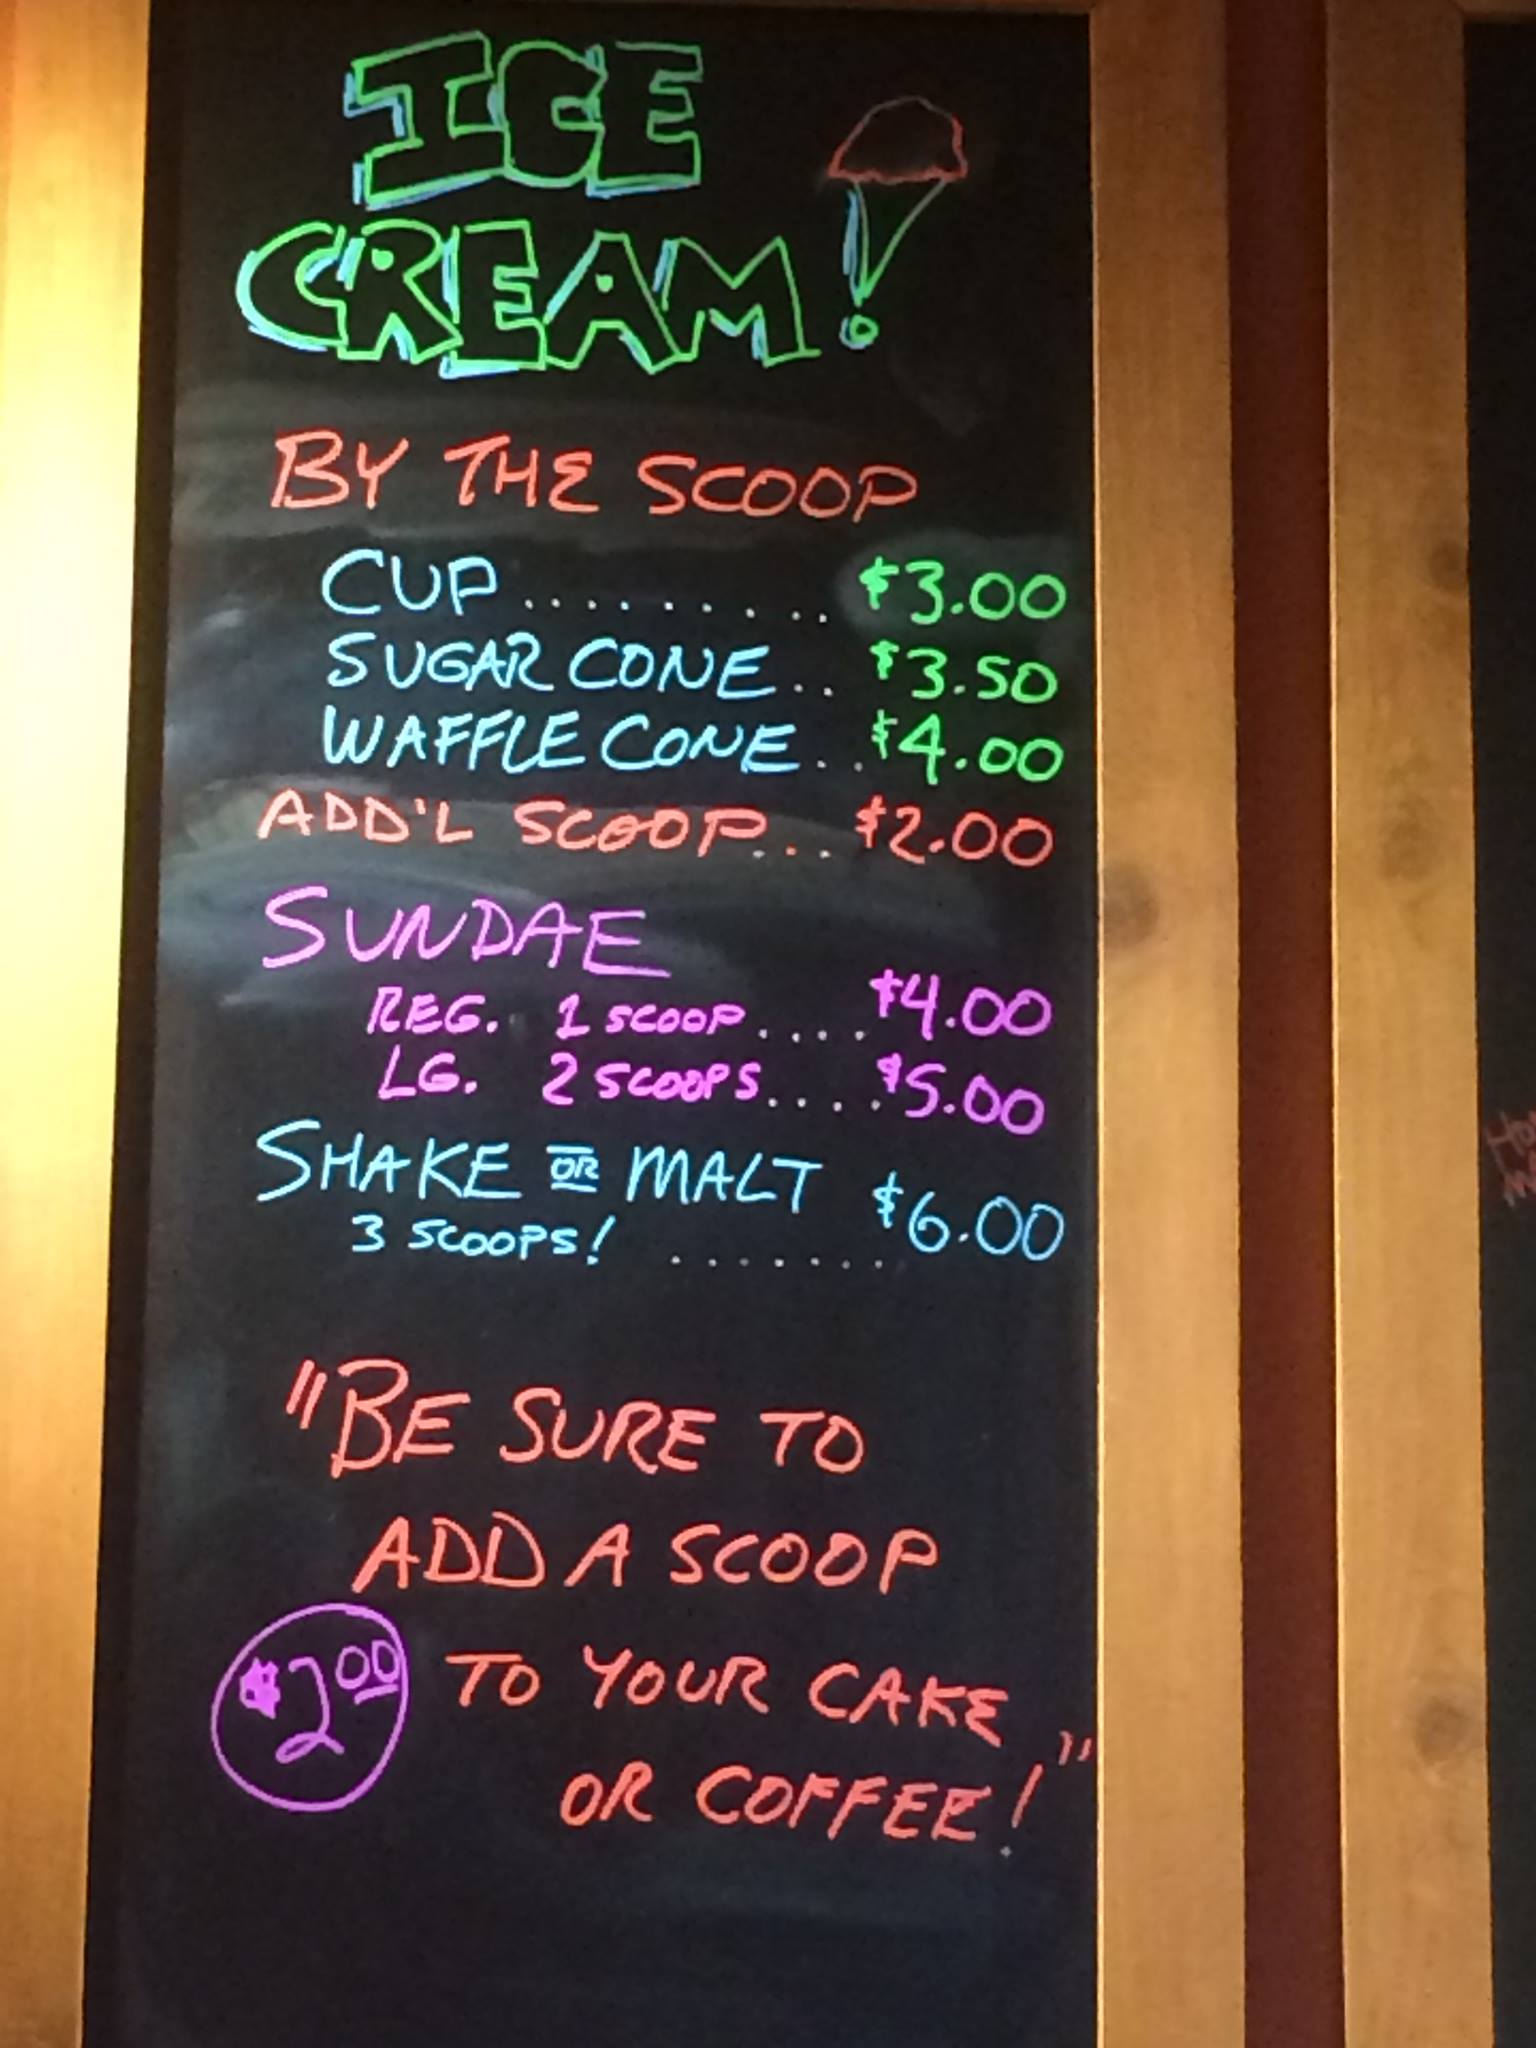 ICE
CREAM!
BY THE SCOOP
CUP.......... $3.00
SUGAR CONE.. $3.50
WAFFLE CONE...$4.00
ADD'L SCOOP... $2.00
SUNDAE
REG. 1 SCOOP....$4.00
LG. 2 SCOOPS....$5.00
SHAKE OR MALT $6.00
3 SCOOPS! .......
"BE SURE TO
ADD A SCOOP
$2.00 TO YOUR CAKE
OR COFFEE!"